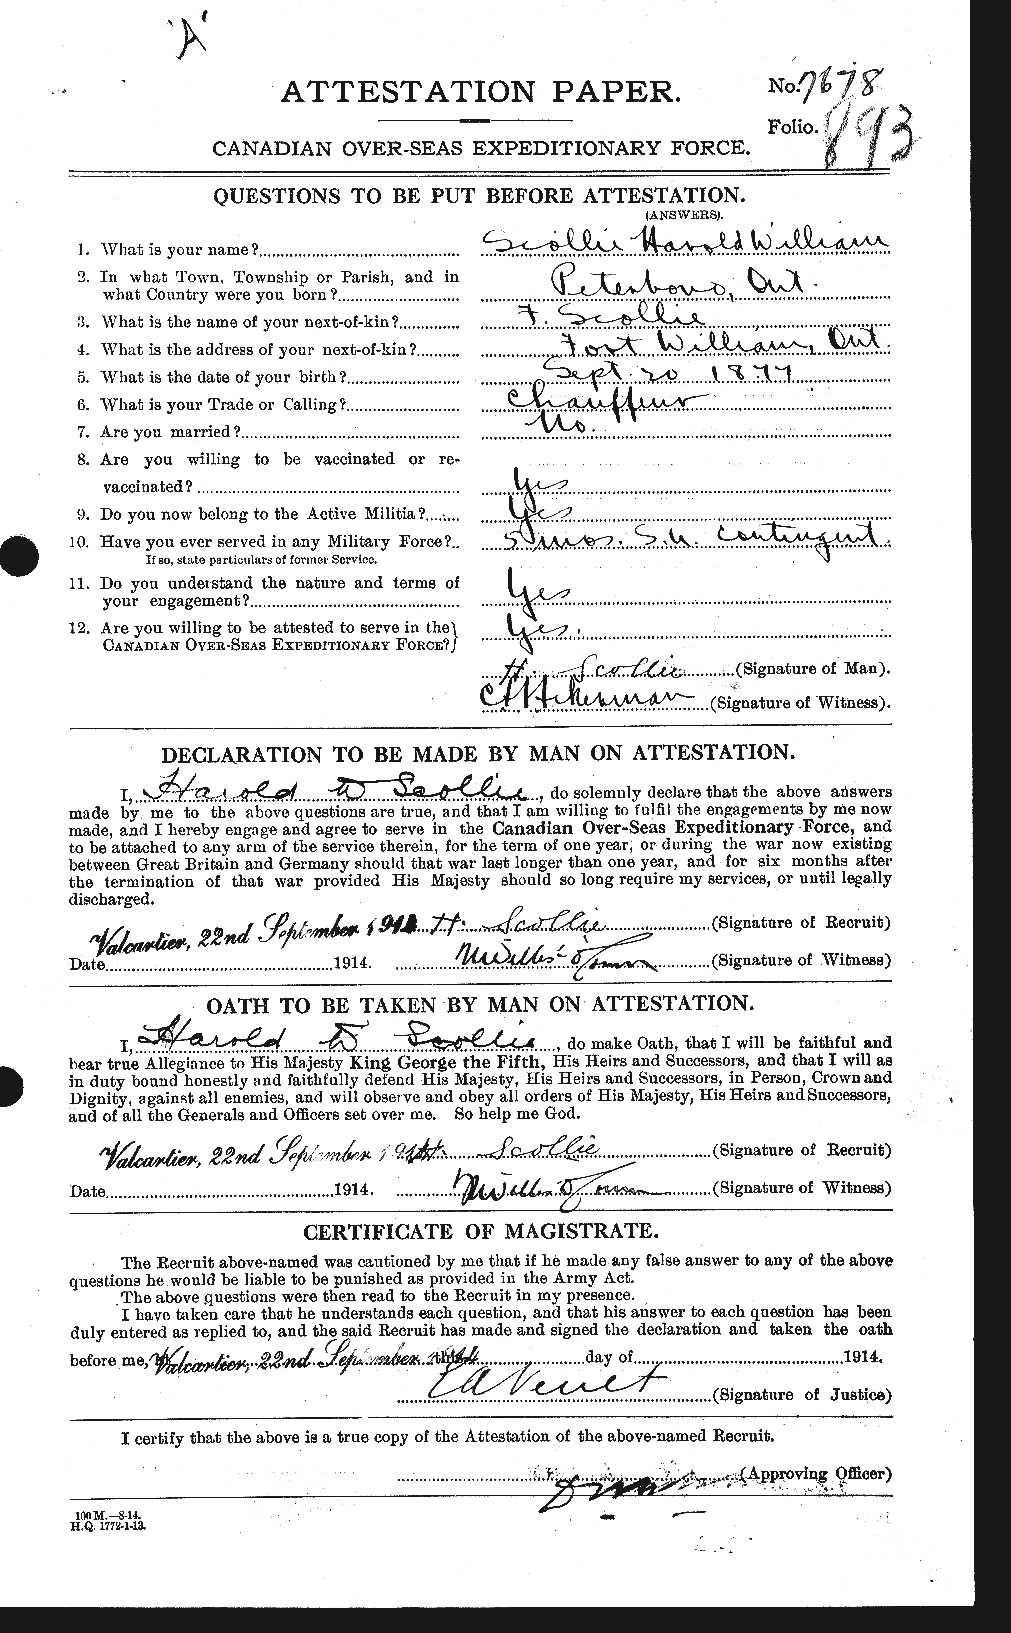 'A'
ATTESTATION PAPER.
No. 7678
Folio. 893
CANADIAN OVER-SEAS EXPEDITIONARY FORCE.
QUESTIONS TO BE PUT BEFORE ATTESTATION.
(ANSWERS).
1. What is your name? Scollie Harold William
2. In what Town, Township or Parish, and in
what Country were you born? Peterboro, Ont.
3. What is the name of your next-of-kin? F. Scollie
4. What is the address of your next-of-kin? Fort William, Ont.
5. What is the date of your birth? Sept. 20 1877
6. What is your Trade or Calling? Chauffeur
7. Are you married? No.
8. Are you willing to be vaccinated or re-
vaccinated? Yes
9. Do you now belong to the Active Militia? Yes
10. Have you ever served in any Military Force? 5 mos. S.A. Contingent.
If so, state particulars of former Service.
11. Do you understand the nature and terms of
your engagement? Yes
12. Are you willing to be attested to serve in the
CANADIAN OVER-SEAS EXPEDITIONARY FORCE? Yes.
H. Scollie (Signature of Man).
(Signature of Witness).
DECLARATION TO BE MADE BY MAN ON ATTESTATION.
I, Harold W Scollie, do solemnly declare that the above answers
made by me to the above questions are true, and that I am willing to fulfil the engagements by me now
made, and I hereby engage and agree to serve in the Canadian Over-Seas Expeditionary Force, and
to be attached to any arm of the service therein, for the term of one year, or during the war now existing
between Great Britain and Germany should that war last longer than one year, and for six months after
the termination of that war provided His Majesty should so long require my services, or until legally
discharged.
Valcartier, 22nd September 1914 H. Scollie (Signature of Recruit)
Date 1914. (Signature of Witness)
OATH TO BE TAKEN BY MAN ON ATTESTATION.
I, Harold W Scollie, do make Oath, that I will be faithful and
bear true Allegiance to His Majesty King George the Fifth, His Heirs and Successors, and that I will as
in duty bound honestly and faithfully defend His Majesty, His Heirs and Successors, in Person, Crown and
Dignity, against all enemies, and will observe and obey all orders of His Majesty, His Heirs and Successors,
and of all the Generals and Officers set over me. So help me God.
Valcartier, 22nd September 1914 H. Scollie (Signature of Recruit)
Date 1914. (Signature of Witness)
CERTIFICATE OF MAGISTRATE.
The Recruit above-named was cautioned by me that if he made any false answer to any of the above
questions he would be liable to be punished as provided in the Army Act.
The above questions were then read to the Recruit in my presence.
I have taken care that he understands each question, and that his answer to each question has been
duly entered as replied to, and the said Recruit has made and signed the declaration and taken the oath
before me, Valcartier, 22nd September 1914 day of 1914.
(Signature of Justice)
I certify that the above is a true copy of the Attestation of the above-named Recruit.
(Approving Officer)
100 M.—8-14.
H.Q. 1772-1-13.